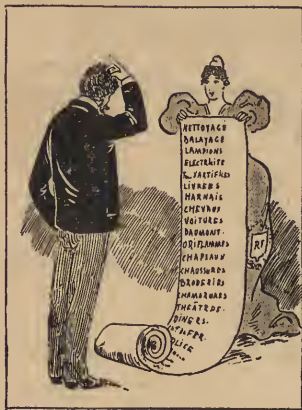 NETTOYAGE
BALAYAGE
LAMPIONS
ELECTRICITE
FEUX D'ARTIFICES
LIVREES
HARNAIS
CHEVAUX
VOITURES
DAUMONT.
ORIFLAMMES
CHAPEAUX
CHAUSSURES
BRODERIES
CHAMBRURES
THEÂTRES.
DINERS.
DE FER.
POLICE
RF